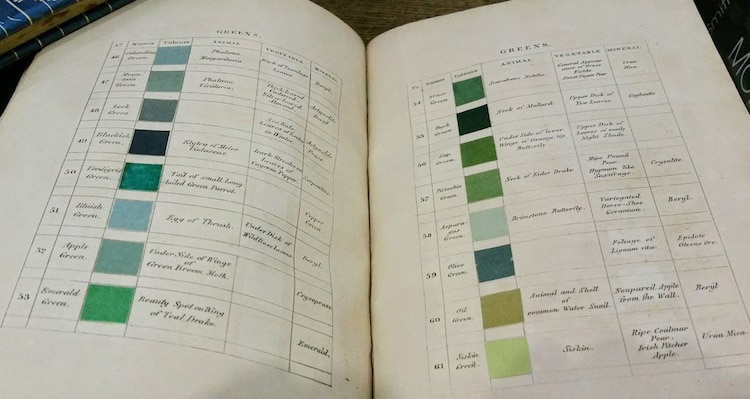 GREENS.
Names
Colours
ANIMAL
VEGETABLE
46
Celandine Green.
Phalœna Margaritaria.
Back of Tussilage Leaves.
Beryl.
47
Mountain Green.
Phalœna Viridaria.
48
Leek Green.
Sea Kale
Leaves of Leeks
in Winter.
49
Blackish Green.
Elytra of Meloe
Violaceus.
Dark Streaks on
Leaves of
Cayenne Pepper.
Serpentine.
50
Verdigris Green.
Tail of small Long
tailed Green Parrot.
Copper
51
Bluish
Green.
Egg of Thrush.
Under Disk of
Wild Rose Leaves
Beryl.
52
Apple
Green.
Under Side of Wings
of
Green Broom Moth.
Crysoprase.
53
Emerald
Green.
Beauty Spot on Wing
of Teal Drake.
Emerald.
GREENS.
Names
Colours
ANIMAL
VEGETABLE
MINERAL
54
Grass
Green
Scarabœus Nobilis.
General Appearance
of Grass
Fields.
Sweet Sugar Pear
Uran
Mica.
55
Duck
Green
Neck of Mallard.
Upper Disk of
Yew Leaves.
Ceylanite
56
Sap
Green
Under Side of lower
Wings of Orange tip
Butterfly.
Upper Disk of
Leaves of woody
Night Shade.
57
Pistachio
Green
Neck of Eider Drake
Ripe Pound
Pear.
Hypnum like
Saxifrage.
Crysolite.
58
Asparagus
Green.
Brimstone Butterfly.
Variegated
Horse-Shoe
Geranium.
Beryl.
59
Olive
Green.
Foliage of
Lignum vitæ.
Epidote
Olvene Ore.
60
Oil
Green.
Animal and Shell
of
common Water Snail.
Nonpareil Apple
from the Wall.
Beryl
61
Siskin
Green.
Siskin.
Ripe Coalmar
Pear.
Irish Pitcher
Apple.
Uran Mica.
MO